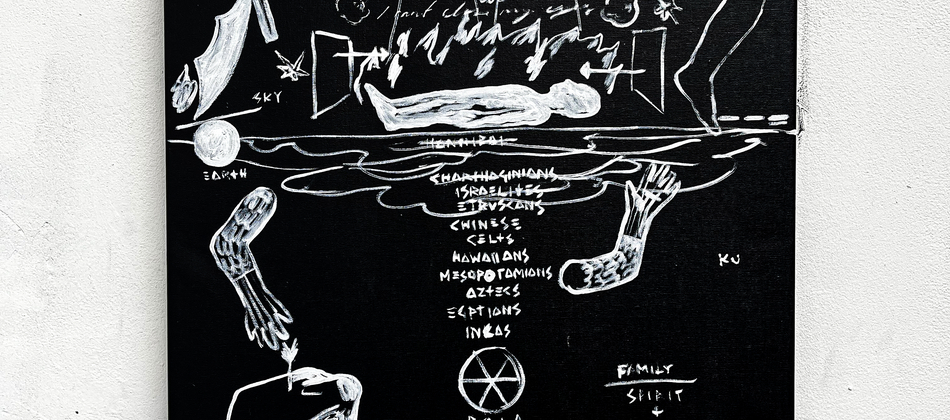 SKY
EARTH
HANNIBAL
CHARTHAGINIANS
ISRAELITES
ETRUSCANS
CHINESE
CELTS
HAWAIIANS
MESOPOTAMIANS
AZTECS
EGPTIANS
INCAS
KU
FAMILY
SPIRIT
+